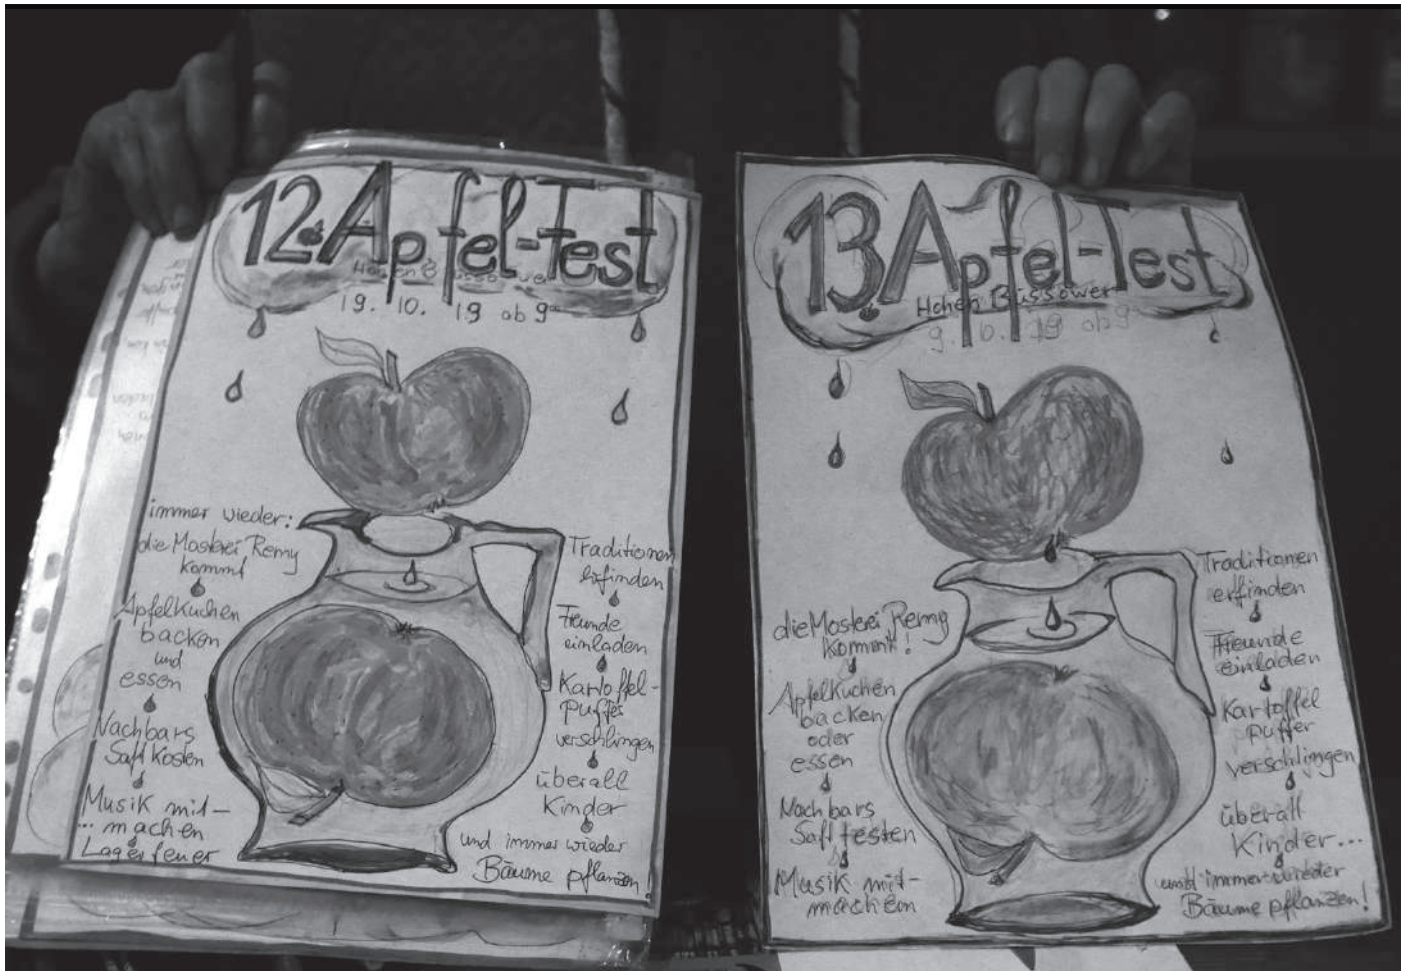 12. Apfel-Test
Hohen Büssower
19. 10. 19 ab 9⁰⁰
immer wieder:
die Mosterei Remy
kommt
Apfelkuchen
backen
und
essen
Nachbars
Saft kosten
Musik mit-
... machen
Lagerfeuer
Traditionen
erfinden
Freunde
einladen
Kartoffel-
puffer
verschlingen
überall
Kinder
und immer wieder
Bäume pflanzen!
13. Apfel-Test
Hohen Büssower
die Mosterei Remy
kommt!
Apfelkuchen
backen
oder
essen
Nachbars
Saft testen
Musik mit-
machen
Traditionen
erfinden
Freunde
einladen
Kartoffel
puffer
verschlingen
überall
Kinder...
und immer wieder
Bäume pflanzen!